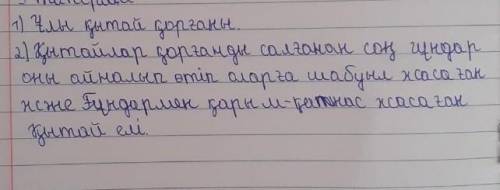 1) Ұлы қытай қорғаны.
2) Қытайлар қорғанды салғанан соң ғұндар
оны айналып өтіп аларға шабуыл жасаған
және Ғұндармен қарым-қатнас жасаған
Қытай елі.